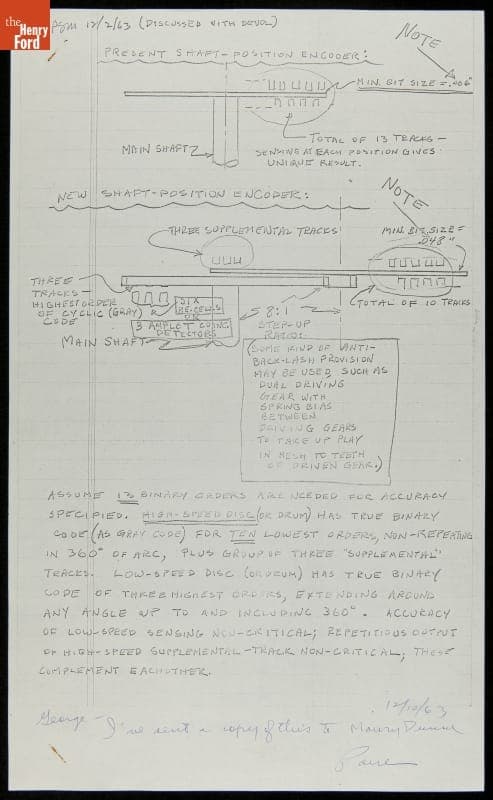 the Henry Ford
PSM 12/2/63 (DISCUSSED WITH DEVOL)
NOTE
PRESENT SHAFT-POSITION ENCODER:
MIN. BIT SIZE = .006"
TOTAL OF 13 TRACKS—
MAIN SHAFT
SENSING AT EACH POSITION GIVES
UNIQUE RESULT.
NEW SHAFT-POSITION ENCODER:
NOTE
THREE SUPPLEMENTAL TRACKS
MIN. BIT SIZE =
.048"
THREE
TRACKS—
HIGHEST ORDER
OF CYCLIC (GRAY)
CODE
SIX
RE-CELLS
OR
3 AMPLOT COING
DETECTORS
MAIN SHAFT
8:1
STEP-UP
RATIO:
TOTAL OF 10 TRACKS
(SOME KIND OF ANTI-
BACK-LASH PROVISION
MAY BE USED, SUCH AS
DUAL DRIVING
GEAR WITH
SPRING BIAS
BETWEEN
DRIVING GEARS
TO TAKE UP PLAY
IN MESH TO TEETH
OF DRIVEN GEAR.)
ASSUME 13 BINARY ORDERS ARE NEEDED FOR ACCURACY
SPECIFIED. HIGH-SPEED DISC (OR DRUM) HAS TRUE BINARY
CODE (AS GRAY CODE) FOR TEN LOWEST ORDERS, NON-REPEATING
IN 360° OF ARC, PLUS GROUP OF THREE "SUPPLEMENTAL"
TRACKS. LOW-SPEED DISC (OR DRUM) HAS TRUE BINARY
CODE OF THREE HIGHEST ORDERS, EXTENDING AROUND
ANY ANGLE UP TO AND INCLUDING 360°. ACCURACY
OF LOW-SPEED SENSING NON-CRITICAL; REPETITIOUS OUTPUT
OF HIGH-SPEED SUPPLEMENTAL-TRACK NON-CRITICAL; THESE
COMPLEMENT EACHOTHER.
12/10/63
George—
I've sent a copy of this to Maury